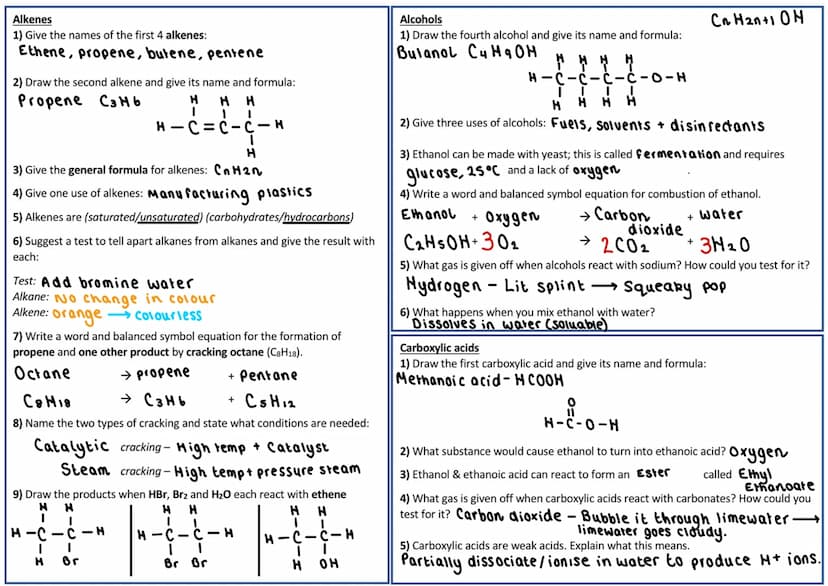 Alkenes
1) Give the names of the first 4 alkenes:
Ethene, propene, butene, pentene
2) Draw the second alkene and give its name and formula:
Propene C3H6
H H H
H - C = C - C - H
H
3) Give the general formula for alkenes: CnH2n
4) Give one use of alkenes: Manufacturing plastics
5) Alkenes are (saturated/unsaturated) (carbohydrates/hydrocarbons)
6) Suggest a test to tell apart alkanes from alkanes and give the result with
each:
Test: Add bromine water
Alkane: No change in colour
Alkene: orange → colourless
7) Write a word and balanced symbol equation for the formation of
propene and one other product by cracking octane (C8H18).
Octane → propene + Pentane
C8H18 → C3H6 + C5H12
8) Name the two types of cracking and state what conditions are needed:
Catalytic cracking – High temp + Catalyst
Steam cracking – High temp + pressure steam
9) Draw the products when HBr, Br2 and H2O each react with ethene
H H H H H H
H - C - C - H H - C - C - H H - C - C - H
H Br Br Br H OH
Alcohols CnH2n+1 OH
1) Draw the fourth alcohol and give its name and formula:
Butanol C4H9OH
H H H H
H - C - C - C - C - O - H
H H H H
2) Give three uses of alcohols: Fuels, solvents + disinfectants
3) Ethanol can be made with yeast; this is called Fermentation and requires
glucose, 25°C and a lack of oxygen
4) Write a word and balanced symbol equation for combustion of ethanol.
Ethanol + Oxygen → Carbon dioxide + water
C2H5OH + 3O2 → 2CO2 + 3H2O
5) What gas is given off when alcohols react with sodium? How could you test for it?
Hydrogen - Lit splint → Squeaky pop
6) What happens when you mix ethanol with water?
Dissolves in water (soluable)
Carboxylic acids
1) Draw the first carboxylic acid and give its name and formula:
Methanoic acid - HCOOH
O
H - C - O - H
2) What substance would cause ethanol to turn into ethanoic acid? Oxygen
3) Ethanol & ethanoic acid can react to form an Ester called Ethyl
Ethanoate
4) What gas is given off when carboxylic acids react with carbonates? How could you
test for it? Carbon dioxide - Bubble it through limewater →
limewater goes cloudy.
5) Carboxylic acids are weak acids. Explain what this means.
Partially dissociate/ionise in water to produce H+ ions.